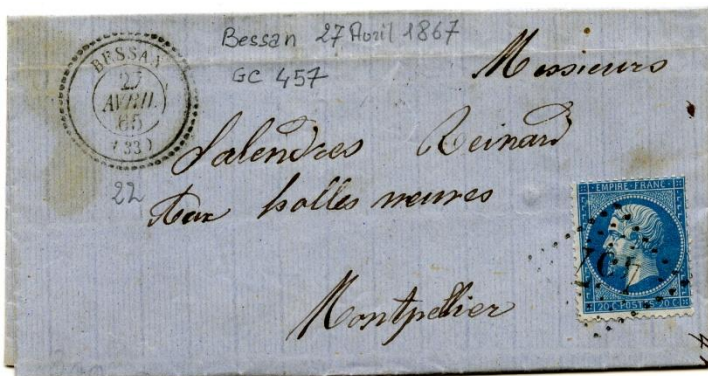 Bessan 27 Avril 1867
GC 457
BESSAN
27
AVRIL
65
(33)
22
Messieurs
Salendres Reinard
Aux halles neuves
Montpellier
EMPIRE FRANC
457
20 C POSTES 20 C